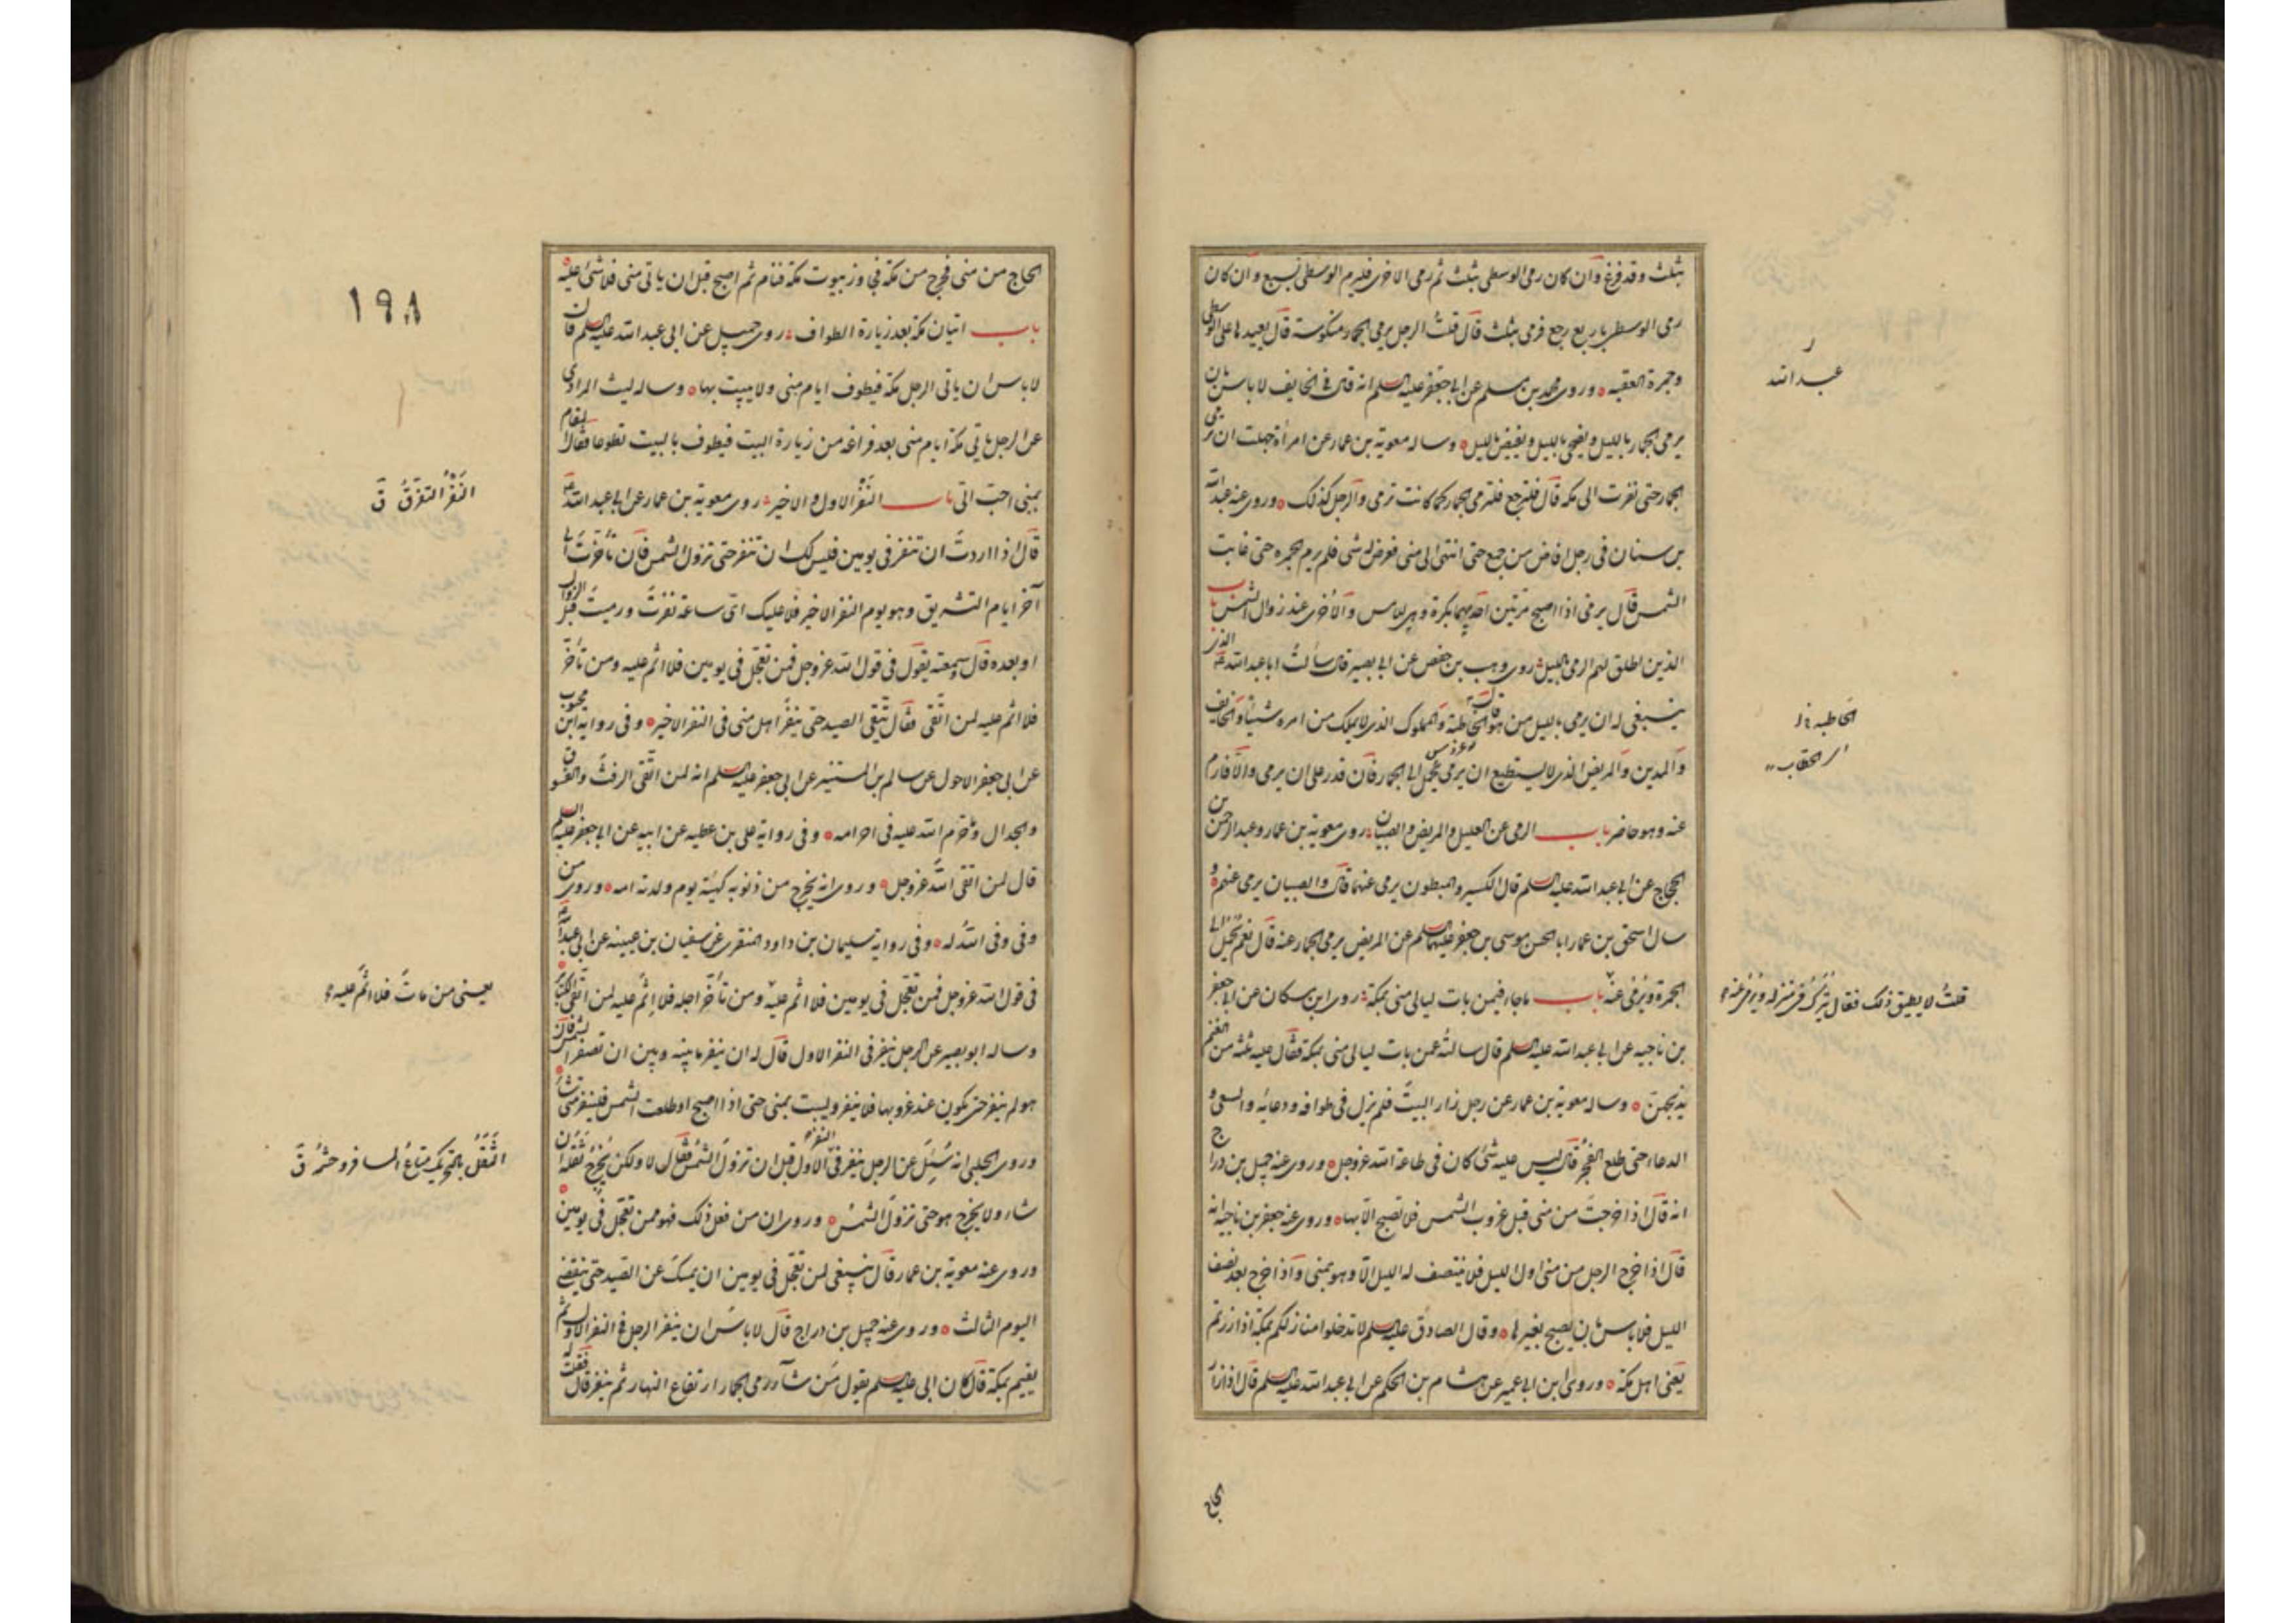 بثلث وقد فرغ وان كان رمى الوسطى بثلث ثم رمى الاخرى فليرم الوسطى بسبع وان كان
رمى الوسطى باربع رجع فرمى بثلث قال قلت الرجل يرمى الجمار منكوسة قال يعيدها على الوسطى
وجمرة العقبه وروى محمد بن مسلم عن ابى جعفر عليه السلم انه قال فى الخايف لا باس بان
يرمى الجمار بالليل ويضحى بالليل ويفيض بالليل وساله معوية بن عمار عن امرأة جهلت ان ترمى
الجمار حتى نفرت الى مكه قال فلترجع فلترمى الجمار كما كانت ترمى والرجل كذلك وروى عنه عبد الله
بن سنان فى رجل افاض من جمع حتى انتهى الى منى فعرض له شى فلم يرم الجمره حتى غابت
الشمس قال يرمى اذا اصبح مرتين احديهما بكرة وهى للامس والاخرى عند زوال الشمس باب
الذين اطلق لهم الرمى بالليل روى وهب بن حفص عن ابى بصير قال سألت ابا عبد الله ع الذى
ينبغى له ان يرمى بالليل من هو قال الحاطبة والمملوك الذى لا يملك من امره شيئا والخايف
والمدين والمريض الذى لا يستطيع ان يرمى يحمل الى الجمار فان قدر على ان يرمى والا فارم
عنه وهو حاضر باب الرمى عن العليل والمريض والصبيان روى معوية بن عمار وعبد الرحمن بن
الحجاج عن ابى عبد الله عليه السلم قال الكسير والمبطون يرمى عنهما قال والصبيان يرمى عنهم و
سال اسحق بن عمار ابا الحسن موسى بن جعفر عليهما السلم عن المريض يرمى الجمار عنه قال نعم يحمل الى
الجمرة ويرمى عنه باب ما جاء فيمن بات ليالى منى بمكة روى ابن مسكان عن جعفر
بن ناجيه عن ابى عبد الله عليه السلم قال سالته عمن بات ليالى منى بمكة فقال عليه ثلثة من الغنم
يذبحهن وساله معوية بن عمار عن رجل زار البيت فلم يزل فى طوافه ودعائه والسعى و
الدعاء حتى طلع الفجر قال ليس عليه شئ كان فى طاعة الله عز وجل وروى عنه جميل بن دراج
انه قال اذا خرجت من منى قبل غروب الشمس فلا تصبح الا بها وروى عنه جعفر بن ناجيه انه
قال اذا خرج الرجل من منى اول الليل فلا ينتصف له الليل الا وهو بمنى واذا خرج بعد نصف
الليل فلا باس بان يصبح بغيرها وقال الصادق عليه السلم لا تدخلوا منازلكم بمكة اذا زرتم
يعنى اهل مكة وروى ابن ابى عمير عن هشام بن الحكم عن ابى عبد الله عليه السلم قال اذا زار
عبد الله
الحاطبه
قلت لا يطيق ذلك فقال يترك فى منزله ويرمى عنه
الحاج
١٩٨
الحاج من منى فخرج من مكة فجاوز بيوت مكة فنام ثم اصبح قبل ان ياتى منى فلا شئ عليه
باب اتيان مكة بعد زيارة الطواف روى جميل عن ابى عبد الله عليه السلم قال
لا باس ان ياتى الرجل مكة فيطوف ايام منى ولا يبيت بها وساله ليث المرادى
عن الرجل ياتى مكة ايام منى بعد فراغه من زيارة البيت فيطوف بالبيت تطوعا فقال المقام
بمنى احب الى باب النفر الاول والاخير روى معوية بن عمار عن ابى عبد الله ع
قال اذا اردت ان تنفر فى يومين فليس لك ان تنفر حتى تزول الشمس فان تأخرت الى
آخر ايام التشريق وهو يوم النفر الاخير فلا عليك اى ساعة نفرت ورميت قبل الزوال
او بعده قال وسمعته يقول فى قول الله عز وجل فمن تعجل فى يومين فلا اثم عليه ومن تأخر
فلا اثم عليه لمن اتقى فقال يتقى الصيد حتى ينفر اهل منى فى النفر الاخير وفى رواية ابن محبوب
عن ابى جعفر الاحول عن سالم بن المستنير عن ابى جعفر عليه السلم انه لمن اتقى الرفث والفسوق
والجدال وما حرم الله عليه فى احرامه وفى رواية على بن عطيه عن ابيه عن ابى جعفر عليه السلم
قال لمن اتقى الله عز وجل وروى انه يخرج من ذنوبه كهيئة يوم ولدته امه وروى من
وفى وفى الله له وفى رواية سليمان بن داود المنقرى عن سفيان بن عيينه عن ابى عبد الله ع
فى قول الله عز وجل فمن تعجل فى يومين فلا اثم عليه ومن تأخر اجله فلا اثم عليه لمن اتقى الكباير
وساله ابو بصير عن الرجل ينفر فى النفر الاول قال له ان ينفر ما بينه وبين ان تصفر الشمس فان
هو لم ينفر حتى يكون عند غروبها فلا ينفر وليبت بمنى حتى اذا اصبح وطلعت الشمس فلينفر متى شاء
وروى الحلبى انه سئل عن الرجل ينفر فى النفر الاول قبل ان تزول الشمس فقال لا ولكن يخرج ثقله ان
شاء ولا يخرج هو حتى تزول الشمس وروى ان من فعل ذلك فهو ممن تعجل فى يومين
وروى عنه معوية بن عمار قال ينبغى لمن تعجل فى يومين ان يمسك عن الصيد حتى ينقضى
اليوم الثالث وروى عنه جميل بن دراج قال لا باس ان ينفر الرجل فى النفر الاول ثم
يقيم بمكة قال كان ابى عليه السلم يقول من شاء رمى الجمار ارتفاع النهار ثم ينفر قال فقلت له
النفر التفرق ق
يعنى من مات فلا اثم عليه
الثقل بالتحريك متاع المسافر وحشمه ق